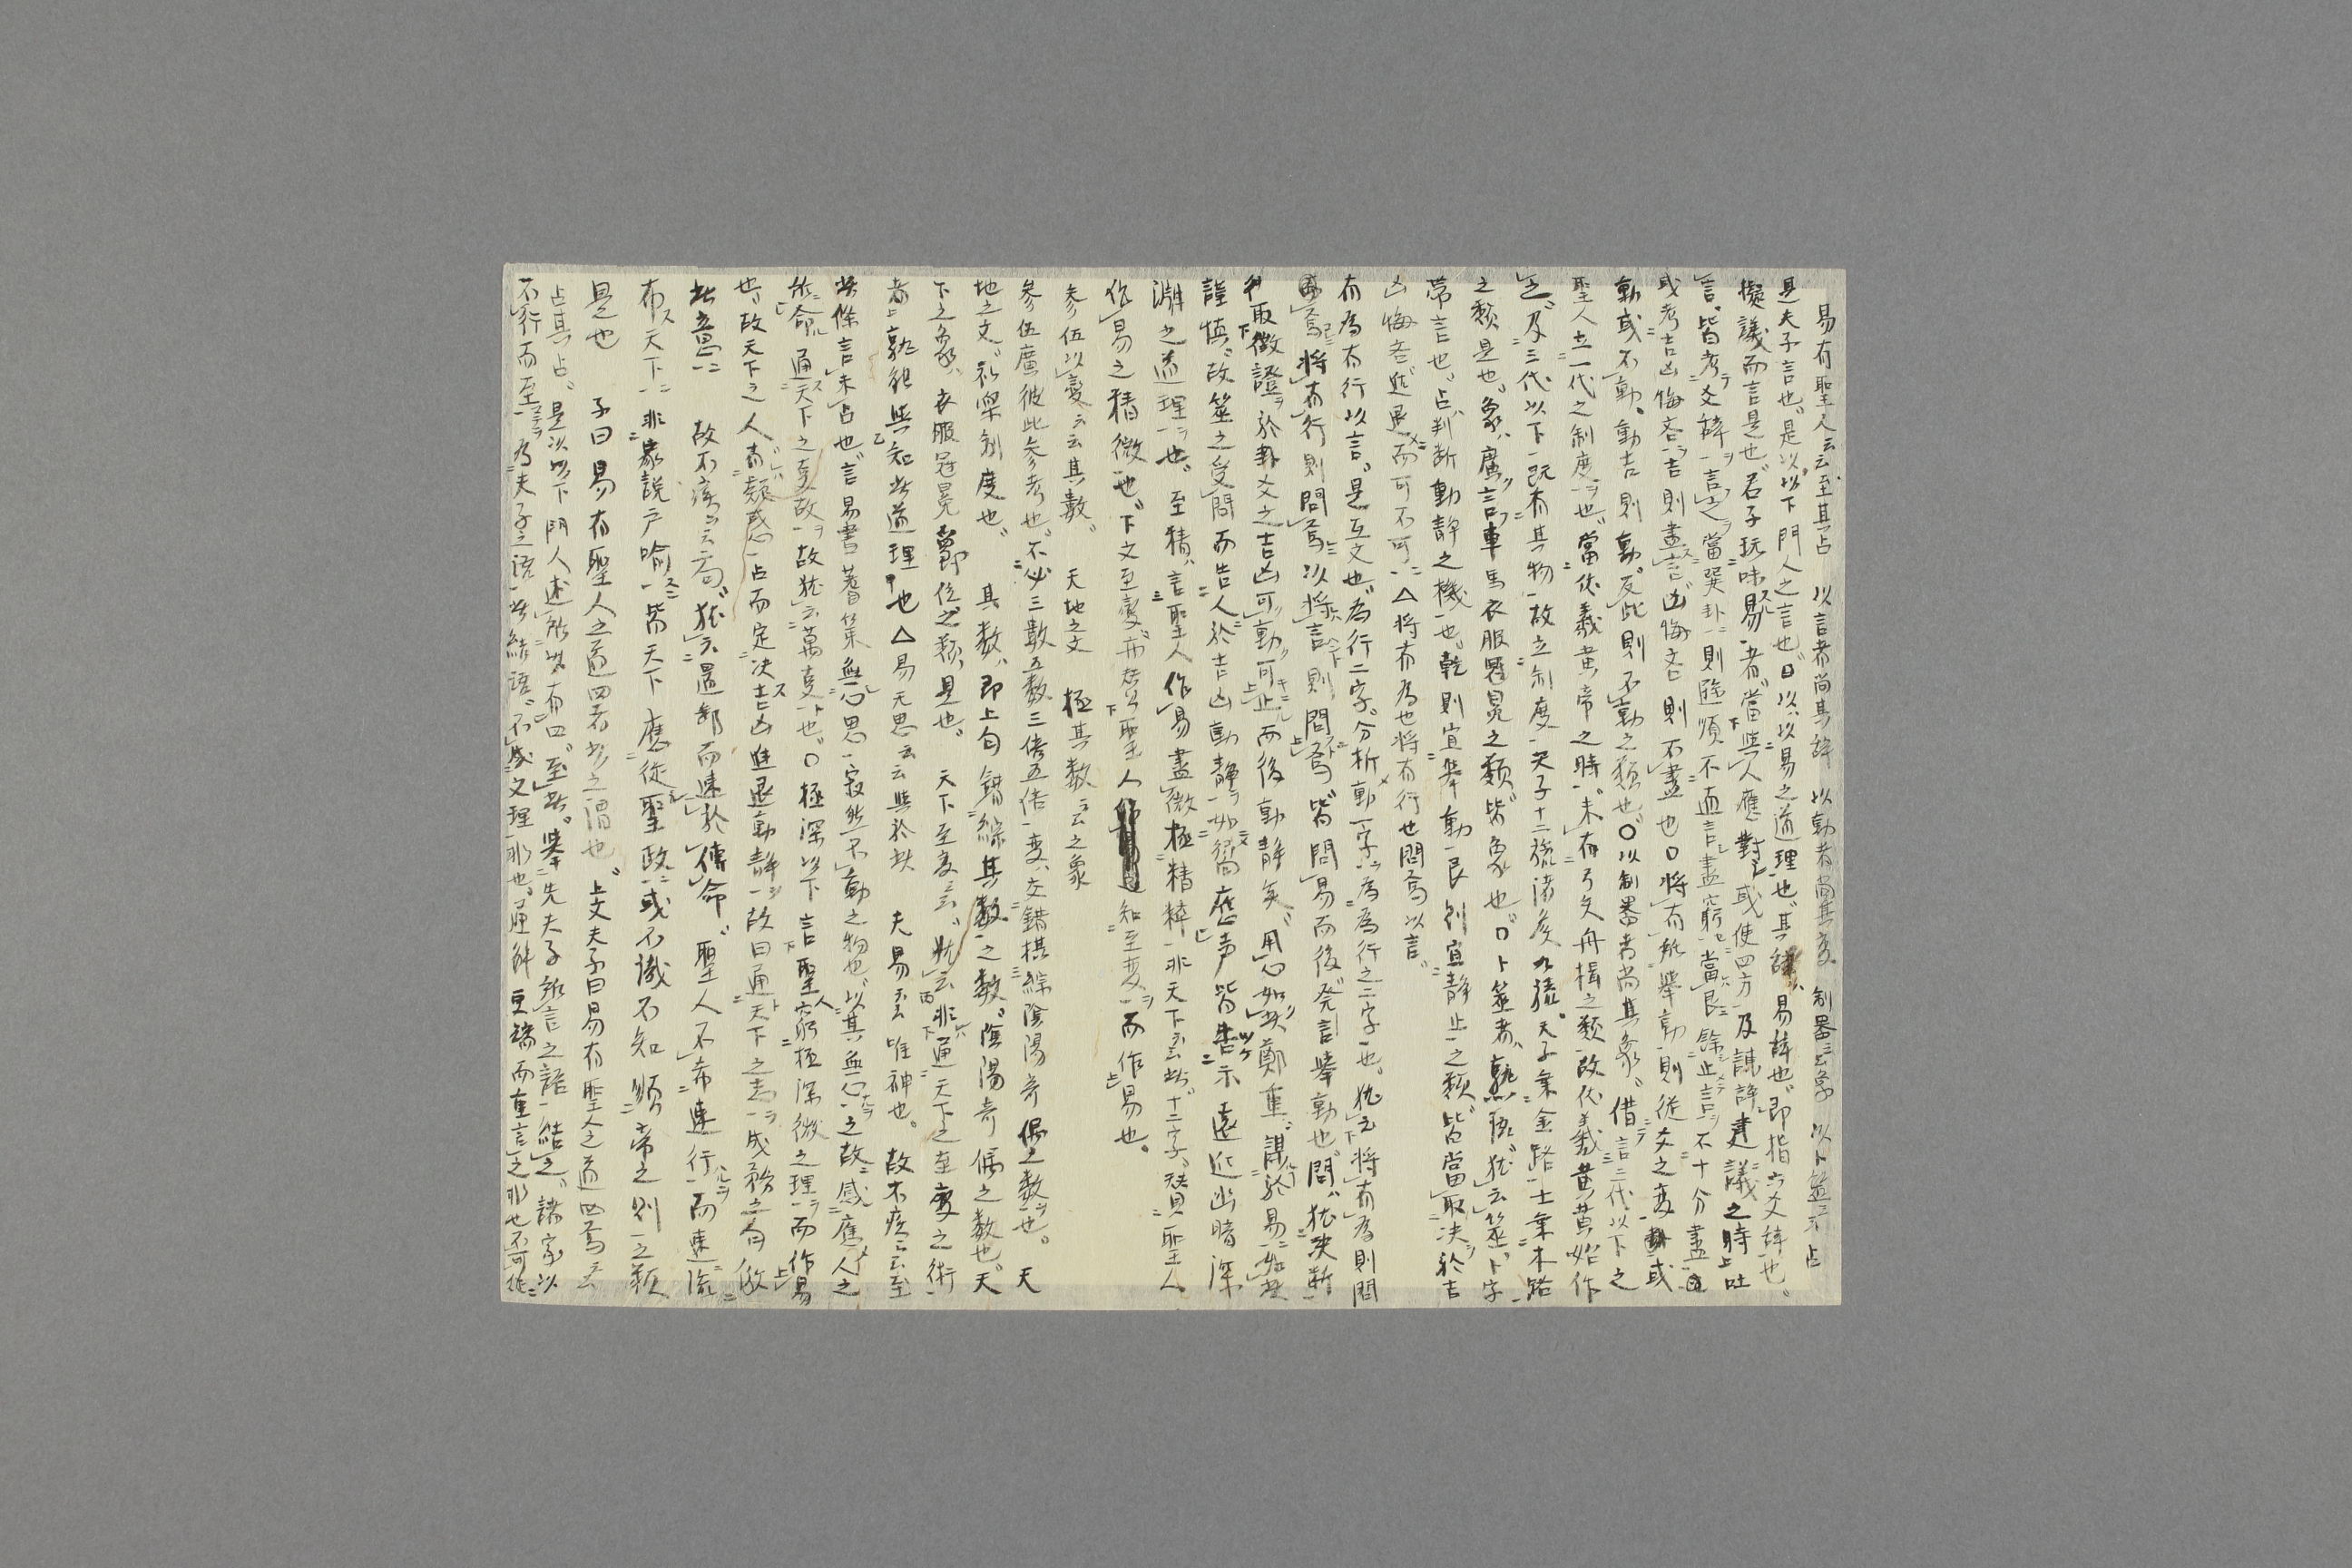 易有聖人云云至其占 以言者尚其辞 以動者尚其変 制器云云象 以卜筮云云占
是夫子言也是以以下門人之言也曰以以易之道理也其辞易辞也即指六爻辞也
擬議而言是也君子玩味易者當與人應對或使四方及諫諍建議之時吐
言皆考爻辞言之當巽卦則隨順不直言盡窮當艮餘止言不十分盡
或考吉凶悔吝吉則盡言凶悔吝則不盡也〇将有所舉動則従爻之変或
動或不動動吉則動反此則不動之類也〇以制器者尚其象借言三代以下之
聖人立一代之制度也當伏羲黄帝之時未有弓矢舟楫之類故伏羲黄帝始作
之及三代以下既有其物故立制度天子十二旒諸侯九旒天子乗金路士乗木路
之類是也象廣言車馬衣服冠冕之類皆象也〇卜筮者熟語犹云筮卜字
帯言也占判断動静之機也乾則宜舉動艮則宜静止之類皆當取决於吉
凶悔吝進退而可不可△将有為也将有行也問焉以言
有為有行以言是互文也為行二字分析動一字為為行之二字也犹云将有為則問
焉将有行則問焉以将言則問焉皆問易而後発言舉動也問犹决断
取徴證於卦爻之吉凶可動可止而後動静矣用心如此鄭重謀於易如此
謹慎故筮之受問而告人於吉凶動静如嚮應声皆告示遠近幽暗深
淵之道理也 至精言聖人作易盡微極精粹非天下至此十二字賛聖人
作易之精微也下文至変亦然聖人知至変而作易也
参伍以変云云其数 天地之文 極其数云云之象
参伍廣彼此参考也不必三数五数三倍五倍変交錯棋綜陰陽奇偶之数也 天
地之文礼樂制度也 其数即上句錯綜其数之数陰陽奇偶之数也天
下之象衣服冠冕爵位之類是也 天下至変云云犹云非通天下之至変之術
者孰能與知此道理也△易无思云云與於此 夫易云云唯神也 故不疾云云至
此條言未占也言易書蓍策無心思寂然不動之物也以其無心之故感應人之
所命通天下之変故故犹云萬変也〇極深以下言聖人窮極深微之理而作易
也故天下之人有疑惑占而定决吉凶進退動静故曰通天下之志成務之句倣
此意 故不疾云云句犹云置郵而速於傳命聖人不希速行而速流
布天下非家説戸喩皆天下應従聖政或不識不知順帝之則之類
是也 子曰易有聖人之道四者此之謂也上文夫子曰易有聖人之道四焉云云
占其占是以以下門人述所以有四至此舉先夫子所言之語結之諸家以
不行而至為夫子之語此結語不成文理非也通解更端而重言之非也不可従